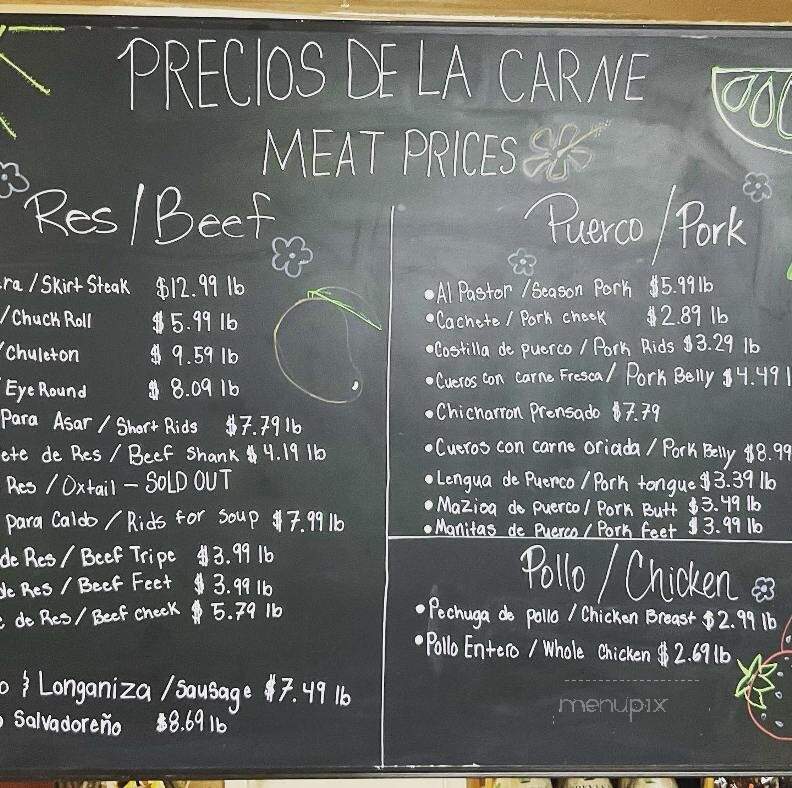 PRECIOS DE LA CARNE
MEAT PRICES
Res/Beef
ra / Skirt Steak $12.99 lb
/Chuck Roll $5.99 lb
Chuleton $ 9.59 lb
Eye Round $ 8.09 lb
Para Asar / Short Rids $7.79 lb
ete de Res / Beef Shank $4.19 lb
Res /Oxtail - SOLD OUT
para Caldo / Rids for Soup $7.99 lb
de Res / Beef Tripe $3.99 lb
de Res / Beef Feet $ 3.99 lb
e de Res / Beef cheek $ 5.79 lb
o & Longaniza /Sausage $7.49 lb
o Salvadoreño $8.69 lb
Puerco/Pork
•Al Pastor /Season Pork $5.99 lb
•Cachete / Pork cheek $2.89 lb
•Costilla de puerco / Pork Rids $3.29 lb
•Cueros con carne Fresca/ Pork Belly $4.49 l
•Chicharron Prensado $7.79
•Cueros con carne oriada / Pork Belly $8.99
•Lengua de Puerco /Pork tongue $3.39 lb
•Mazioa de puerco/ Pork Butt $3.49 lb
•Manitas de Puerco / Pork feet $3.99 lb
Pollo / Chicken
•Pechuga de pollo / Chicken Breast $2.99 lb
•Pollo Entero / Whole Chicken $2.69 lb
menupix